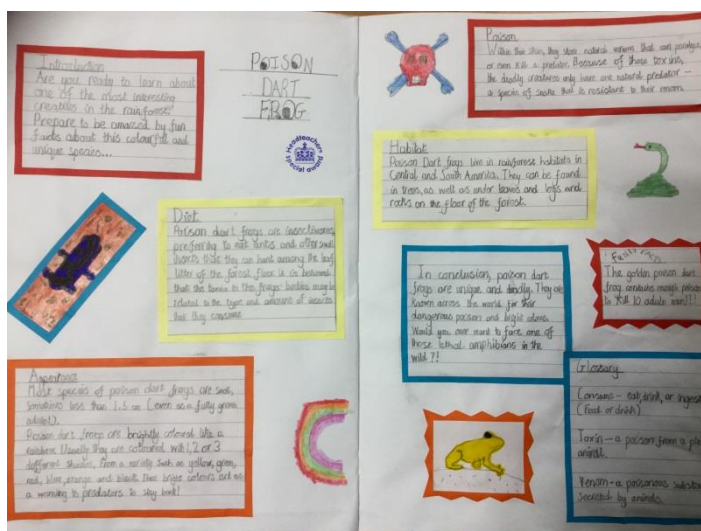 Introduction
Are you ready to learn about
one of the most interesting
creatures in the rainforest?
Prepare to be amazed by fun
facts about this colourful and
unique species...
POISON
DART
FROG
Headteachers
special award
Diet
Poison dart frogs are insectivores,
preferring to eat ants and other small
insects that they can hunt among the leaf
litter of the forest floor. It is believed
that the toxins in the frogs' bodies may be
related to the type and amount of insects
that they consume
Appearance
Most species of poison dart frogs are small,
sometimes less than 1.5 cm (even as a fully grown
adult).
Poison dart frogs are brightly coloured like a
rainbow. Usually they are coloured with 1, 2 or 3
different shades, from a variety such as yellow, green,
red, blue, orange and black. Their bright colours act as
a warning to predators to stay back!
Poison
Within their skin, they store natural venom that can paralyse
or even kill a predator. Because of these toxins,
the deadly creatures only have one natural predator –
a species of snake that is resistant to their venom.
Habitat
Poison Dart frogs live in rainforest habitats in
Central and South America. They can be found
in trees, as well as under leaves and logs and
rocks on the floor of the forest.
In conclusion, poison dart
frogs are unique and deadly. They are
known across the world for their
dangerous poison and bright colours.
Would you ever want to face one of
these lethal amphibians in the
wild?!
Fact
The golden poison dart
frog contains enough poison
to kill 10 adult men!!!
Glossary
Consume – eat, drink, or ingest
(food or drink)
Toxin – a poison from a
animal.
Venom – a poisonous
secreted by animals.